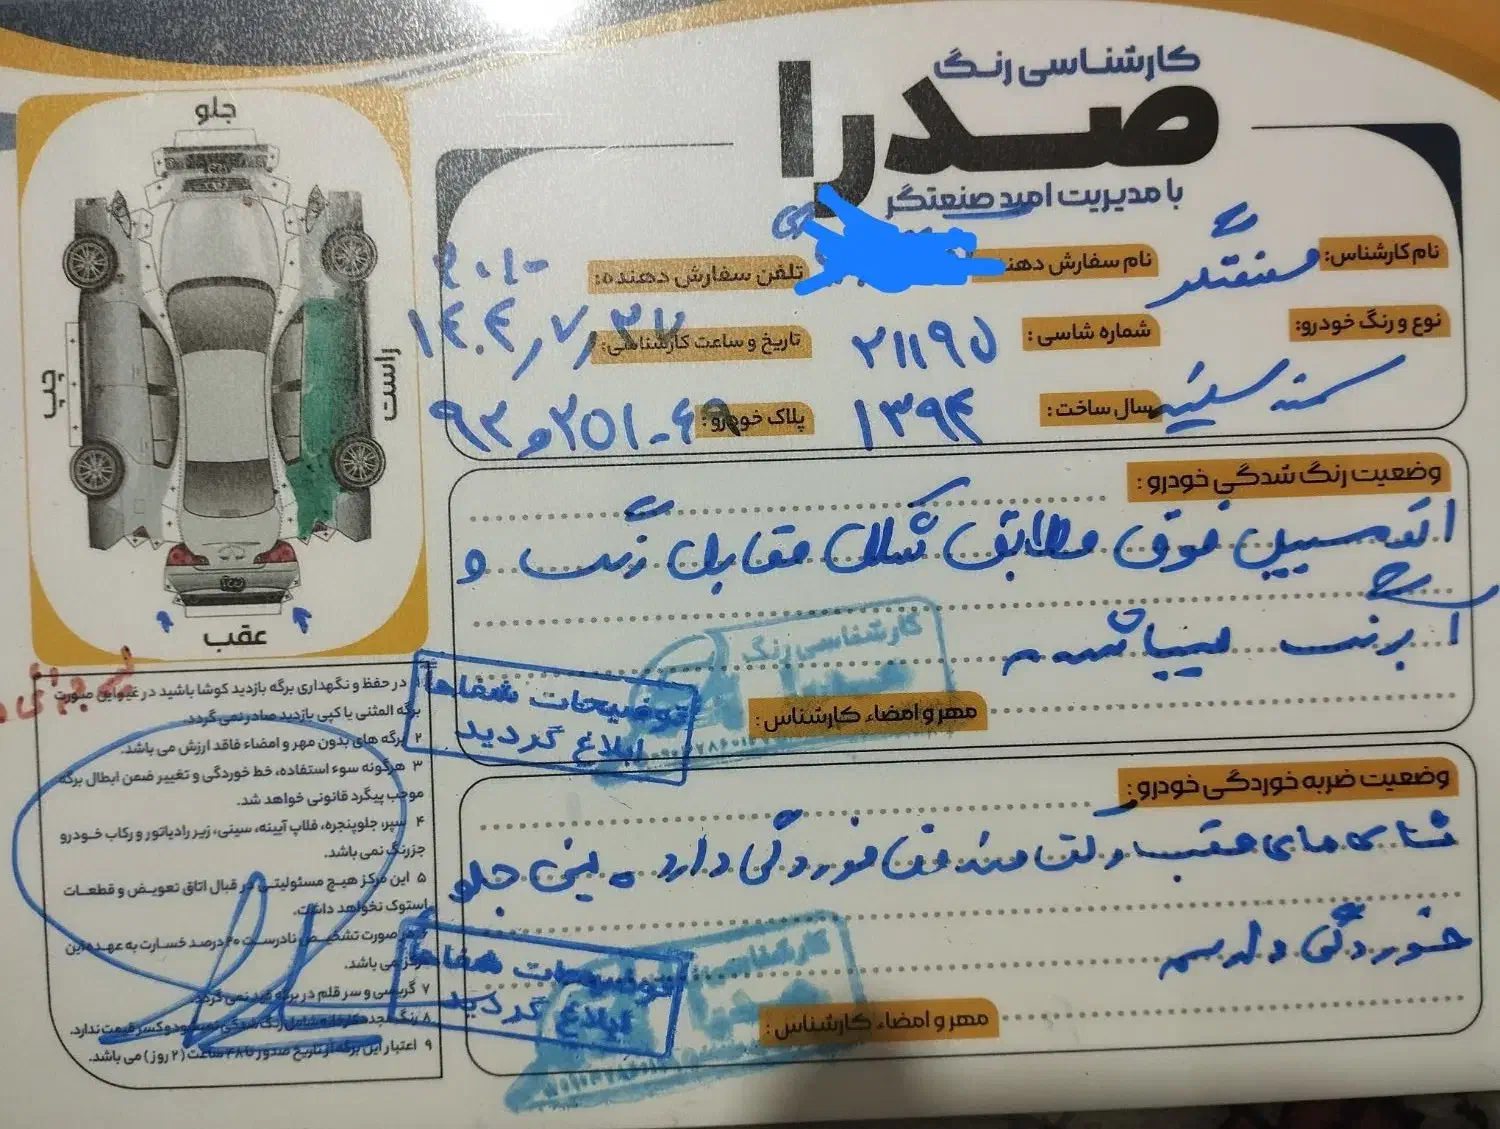 کارشناسی رنگ
صدرا
با مدیریت امید صنعتگر
نام کارشناس: صنعتگر
نام سفارش دهنده
تلفن سفارش دهنده:
نوع و رنگ خودرو: سمند سفید
شماره شاسی: ۲۱۱۹۵
تاریخ و ساعت کارشناسی: ۱۴۰۴/۷/۲۷
سال ساخت: ۱۳۹۴
پلاک خودرو:
جلو
راست
چپ
عقب
وضعیت رنگ شدگی خودرو:
اتومبیل فوق مطابق شکل مقابل رنگ و
میباشد
توضیحات شفاهاً
ابلاغ گردید
کارشناسی رنگ
مهر و امضاء کارشناس:
وضعیت ضربه خوردگی خودرو:
خوردگی دارد. سینی جلو
خوردگی دارد
توضیحات شفاهاً
ابلاغ گردید
مهر و امضاء کارشناس:
۱ در حفظ و نگهداری برگه بازدید کوشا باشید در غیر این صورت
برگه المثنی یا کپی بازدید صادر نمی گردد.
۲ برگه های بدون مهر و امضاء فاقد ارزش می باشد.
۳ هرگونه سوء استفاده، خط خوردگی و تغییر ضمن ابطال برگه
موجب پیگرد قانونی خواهد شد.
۴ سپر، جلوپنجره، فلاپ آیینه، سینی، زیر رادیاتور و رکاب خودرو
جزرنگ نمی باشد.
۵ این مرکز هیچ مسئولیتی در قبال اتاق تعویض و قطعات
استوک نخواهد داشت.
۶ در صورت تشخیص نادرست ۲۰ درصد خسارت به عهده این
مرکز می باشد.
۷ گریسی و سر قلم در برگه قید نمی گردد.
۸ رنگ مجدد کارخانه شامل رنگ شدگی نمیشود و کسر قیمت ندارد.
۹ اعتبار این برگه از تاریخ صدور تا ۴۸ ساعت (۲ روز) می باشد.